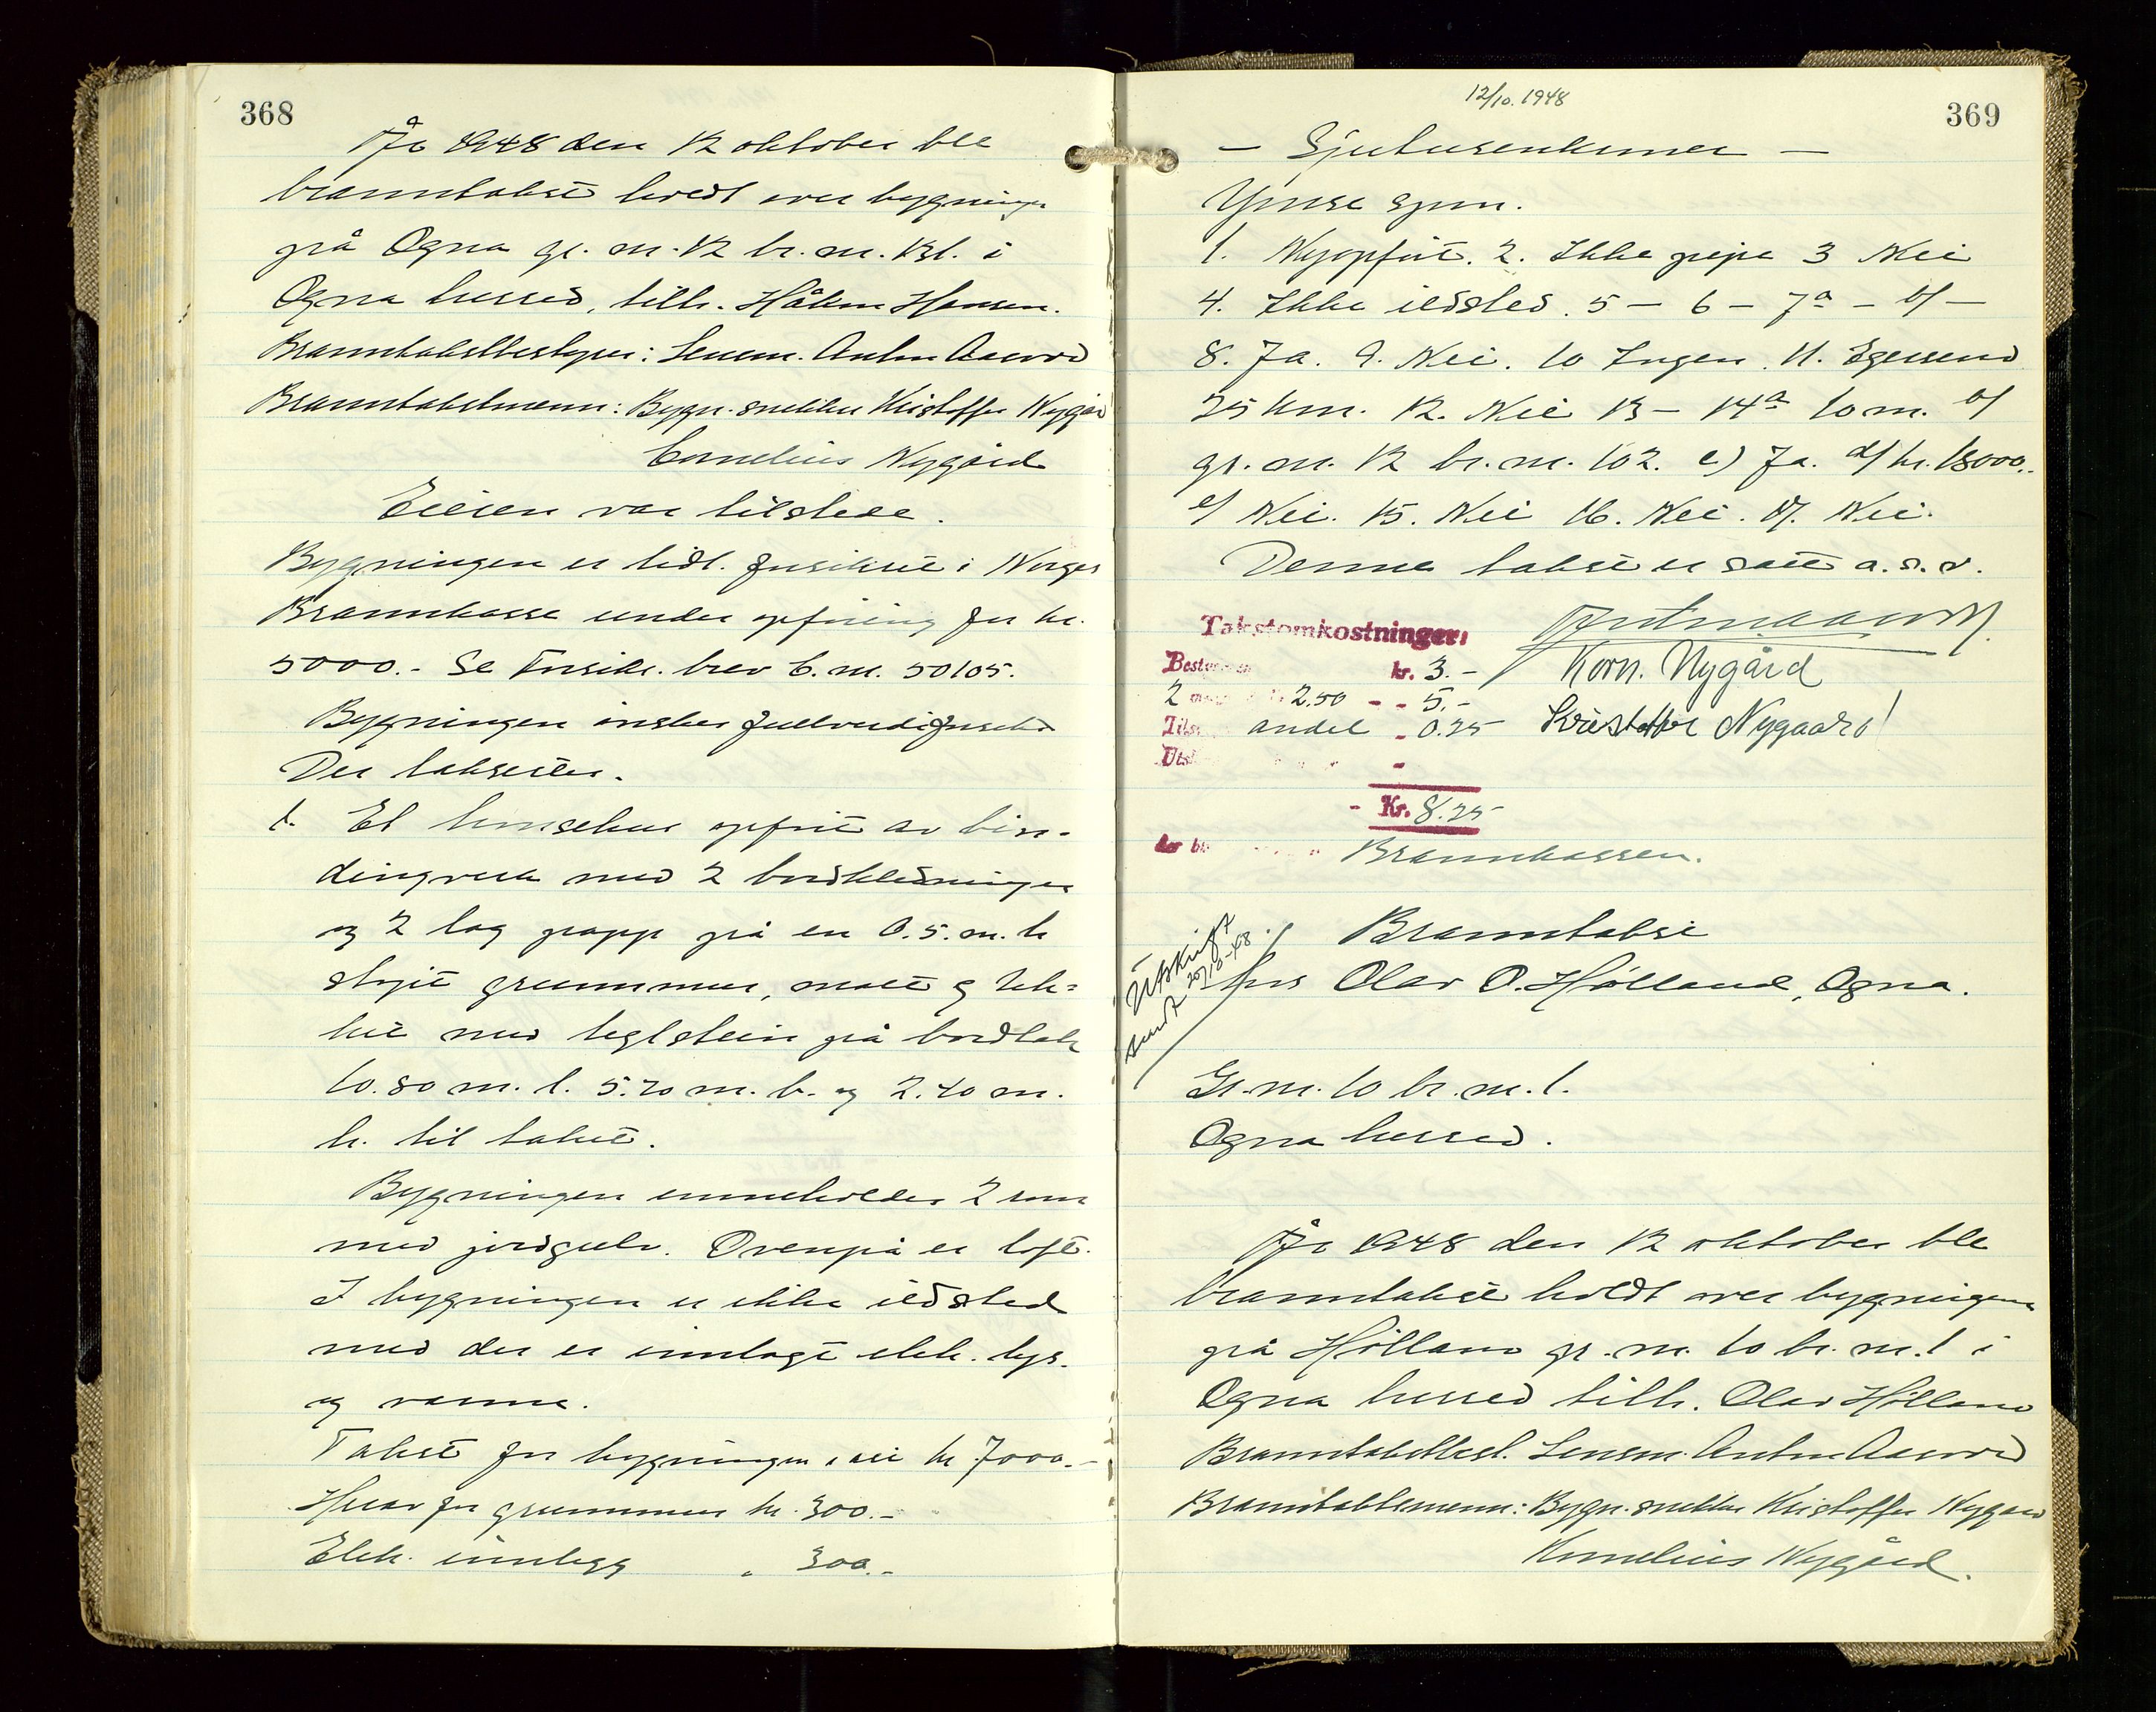 368
År 1948 den 12 oktober ble
branntakst holdt over bygninger
på Ogna gr. nr. 12 br. nr. 131. i
Ogna herred, tilh. Håkon Hansen.
Branntakstbestyrer: Lensm. Anton Aawod
Branntakstmenn: Bygn. snekker Kristoffer Nygård
Cornelius Nygård
Eieren var tilstede.
Bygningen er tidl. forsikret i Norges
Brannkasse under opføring for kr.
5000.- Se forsikr. brev b. nr. 50105.
Bygningen ønskes fullverdiforsikr.
Der takseres.
1. Et hønsehus opført av bin-
dingverk med 2 bordkledninger
og 2 lag papp på en 0.5. m. h
støpt grunnmur, malt og tek-
ket med teglstein på bordtak
10.80 m. l. 5.20 m. b. og 2.40 m.
h. til taket.
Bygningen inneholder 2 rom
med jordgulv. Ovenpå er loft.
I bygningen er ikke ildsted
men der er innlagt elek. lys.
og vann.
Takst for bygningen kr. 7000.-
Herav for grunnmur kr. 300.-
Elek. innlegg " 300.-
12/10. 1948
369
- Sjutusenkroner -
Ymse spm.
1. Nyoppført. 2. Ikke pipe 3 Nei
4. Ikke ildsted. 5 - 6 - 7a - b/ -
8. Ja. 9. Nei. 10 Ingen. 11. Egersund
25 km. 12. Nei 13 - 14a 10 m. b/
gr. nr. 12 br. nr. 102. c) Ja. d/ kr. 18000.-
e/ Nei. 15. Nei 16. Nei. 17. Nei.
Denne takst er satt a. s. v.
Takstomkostninger:
kr. 3.-
Korn. Nygård
2 2.50 - - 5.-
andel - 0.25
Kristoffer Nygaard
- Kr. 8.25
Brannkassen.
Utskrift
sendt 20/10-48.
Branntakst
hos Olav O. Hølland, Ogna.
Gr. nr. 10 br. nr. 1.
Ogna herred.
År 1948 den 12 oktober ble
branntakst holdt over bygningene
på Hølland gr. nr. 10 br. nr. 1 i
Ogna herred tilh. Olav Hølland
Branntakstbest. Lensm. Anton Aawod
Branntakstmenn: Bygn. snekker Kristoffer Nygård
Kornelius Nygård.